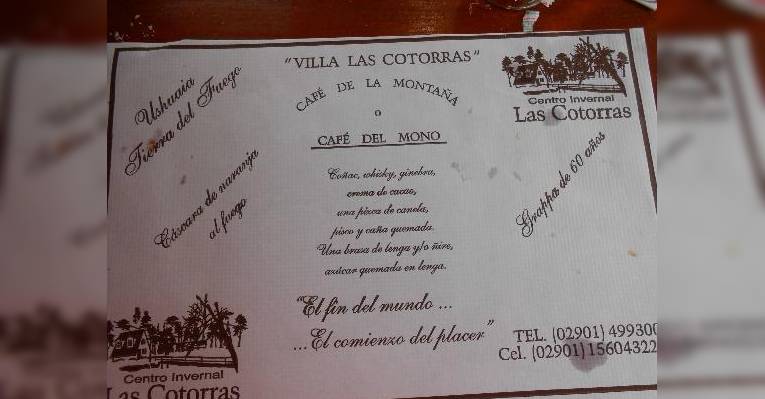 "VILLA LAS COTORRAS"
CAFÉ DE LA MONTAÑA
o
CAFÉ DEL MONO
Ushuaia
Tierra del Fuego
Centro Invernal
Las Cotorras
Cáscara de naranja
al fuego
Grappa de 60 años
Coñac, whisky, ginebra,
crema de cacao,
una pizca de canela,
pisco y caña quemada.
Una brasa de lenga y/o ñire,
azúcar quemada en lenga.
"El fin del mundo ...
...El comienzo del placer"
Centro Invernal
Las Cotorras
TEL. (02901) 499300
Cel. (02901) 15604322